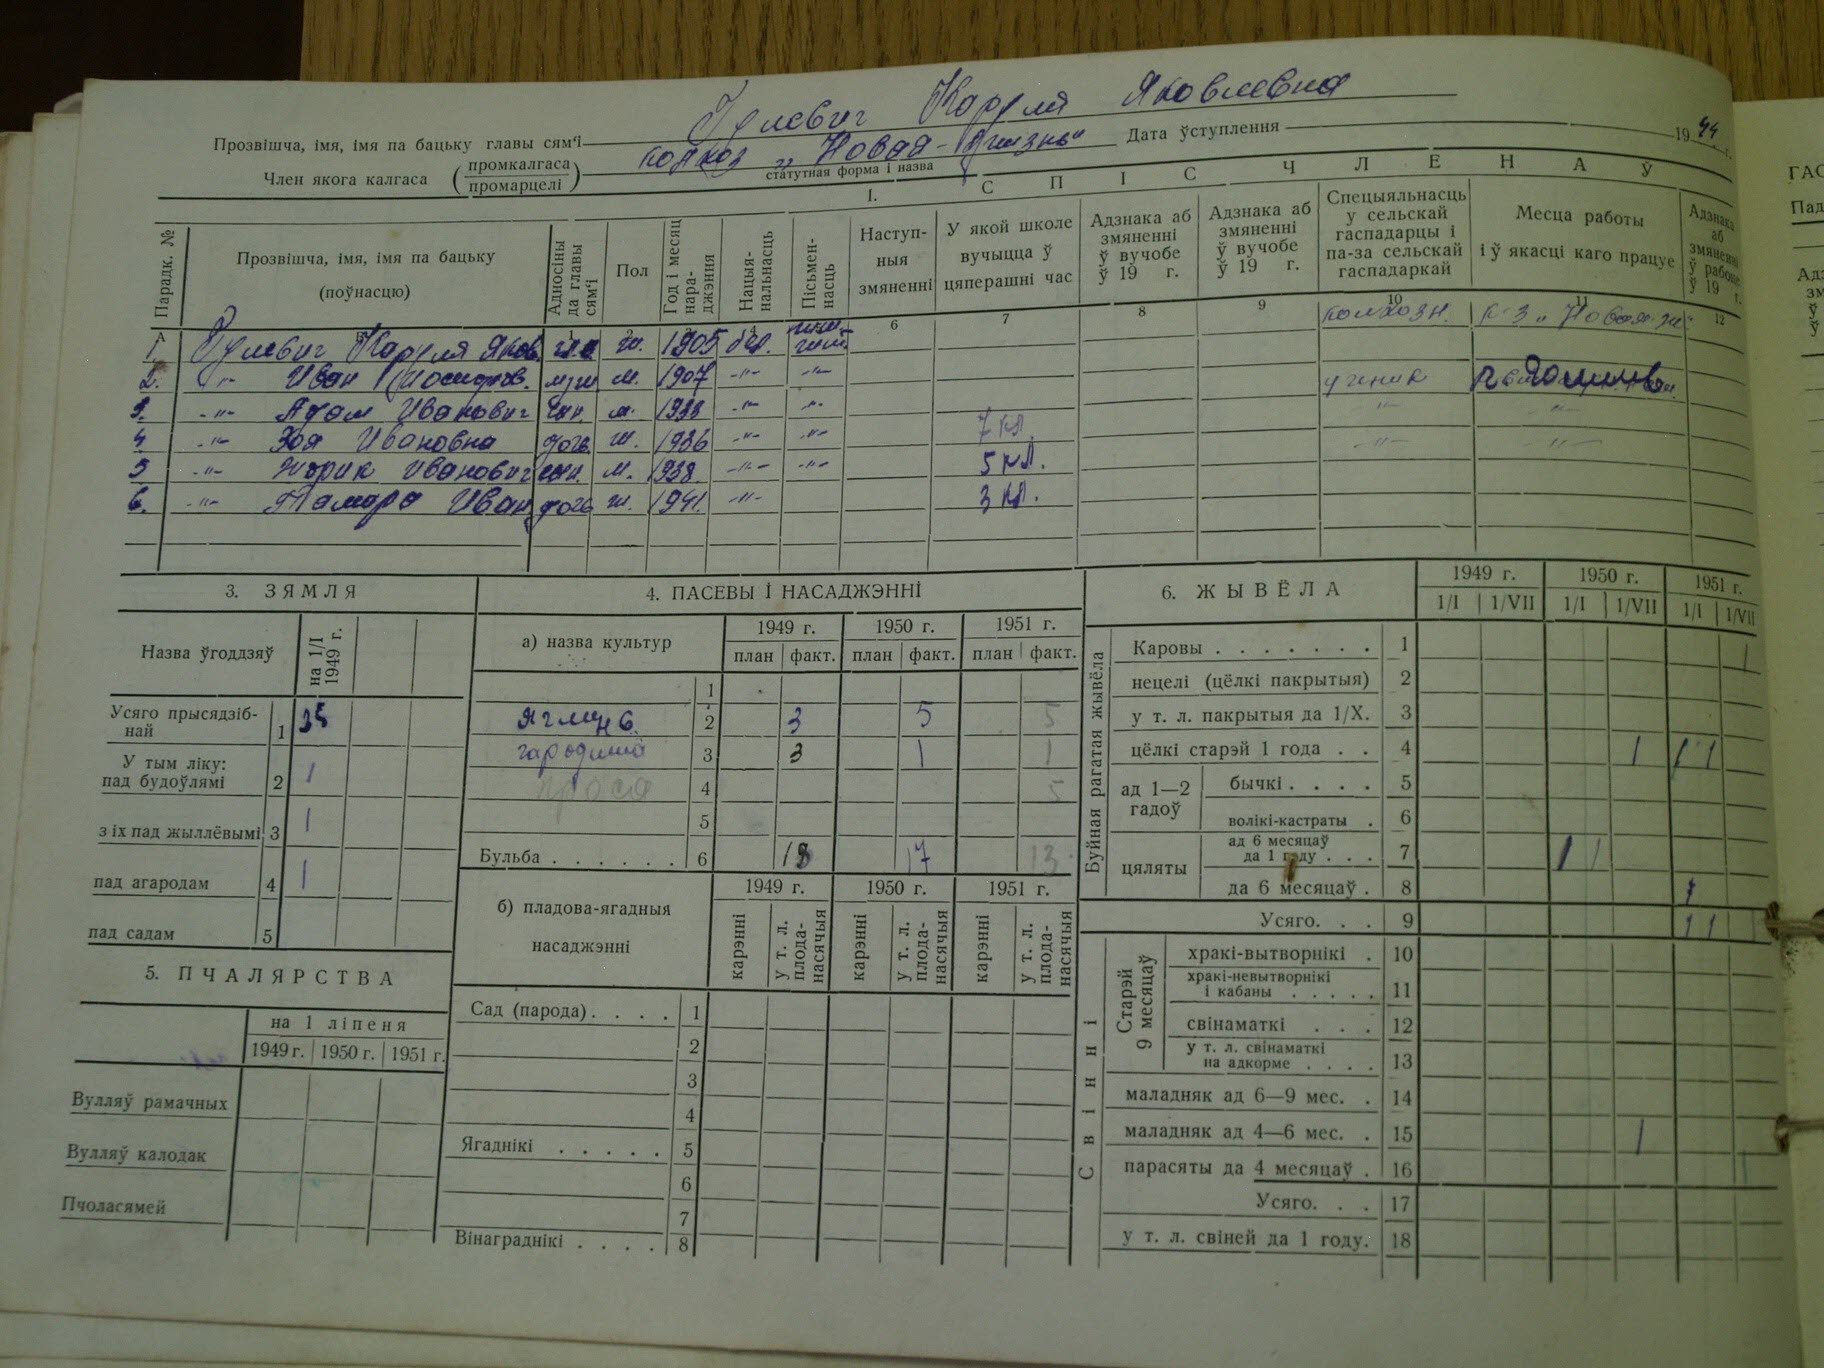 Прозвішча, імя, імя па бацьку главы сям'і Яковлевна
Член якога калгаса (промкалгаса / промарцелі) колхоз „Новая жизнь" Дата ўступлення 19 44 г.
статутная форма і назва
I. СПІС ЧЛЕНАЎ
Парадк. №
Прозвішча, імя, імя па бацьку (поўнасцю)
Адносіны да главы сям'і
Пол
Год і месяц нараджэння
Нацыянальнасць
Пісьменнасць
Наступныя змяненні
У якой школе вучыцца ў цяперашні час
Адзнака аб змяненні ў вучобе ў 19 г.
Адзнака аб змяненні ў вучобе ў 19 г.
Спецыяльнасць у сельскай гаспадарцы і па-за сельскай гаспадаркай
Месца работы і ў якасці каго працуе
Адзнака аб змяненні ў рабоце ў 19 г.
6 7 8 9 10 11 12
1. ж. 1905 бел. колхозн. к-з „Новая ж"
2. -"- Иван муж м. 1907 -"- -"- ученик
3. -"- Адам Иванович м. -"- -"- -"- -"-
4 -"- Зоя Ивановна ж. 1936 -"- -"- 7 кл. -"- -"-
5 -"- Иванович м. 1938 -"- -"- 5 кл.
6. -"- Тамара Иван ж. 1941. -"- 3 кл.
3. ЗЯМЛЯ
Назва ўгоддзяў на 1/I 1949 г.
Усяго прысядзібнай 1 35
У тым ліку: пад будоўлямі 2 1
з іх пад жыллёвымі 3 1
пад агародам 4 1
пад садам 5
5. ПЧАЛЯРСТВА
на 1 ліпеня
1949 г. 1950 г. 1951 г.
Вулляў рамачных
Вулляў калодак
Пчоласямей
4. ПАСЕВЫ І НАСАДЖЭННІ
а) назва культур 1949 г. 1950 г. 1951 г.
план факт. план факт. план факт.
1
ячмень 2 3 5 5
3 3 1 1
проса 4 5
5
Бульба . . . . . . 6 18 17 13
б) пладова-ягадныя насаджэнні 1949 г. 1950 г. 1951 г.
карэнні у т. л. плоданасячыя карэнні у т. л. плоданасячыя карэнні у т. л. плоданасячыя
Сад (парода) . . . . 1
2
3
4
Ягаднікі . . . . . 5
6
7
Вінаграднікі . . . . 8
6. ЖЫВЁЛА 1949 г. 1950 г. 1951 г.
1/I 1/VII 1/I 1/VII 1/I 1/VII
Буйная рагатая жывёла
Каровы . . . . . . . 1 1
нецелі (цёлкі пакрытыя) 2
у т. л. пакрытыя да 1/X. 3
цёлкі старэй 1 года . . 4 1 1 1
ад 1—2 гадоў
бычкі . . . . 5
волікі-кастраты . 6
цяляты
ад 6 месяцаў да 1 году . . . 7 1 1
да 6 месяцаў . 8 1
Усяго. . . 9 1 1
Свінні
Старэй 9 месяцаў
хракі-вытворнікі . 10
хракі-невытворнікі і кабаны . . . . . 11
свінаматкі . . . 12
у т. л. свінаматкі на адкорме . . . . 13
маладняк ад 6—9 мес. . 14
маладняк ад 4—6 мес. . 15 1
парасяты да 4 месяцаў . 16 1
Усяго. . . 17
у т. л. свіней да 1 году. 18
ГАС
Пад